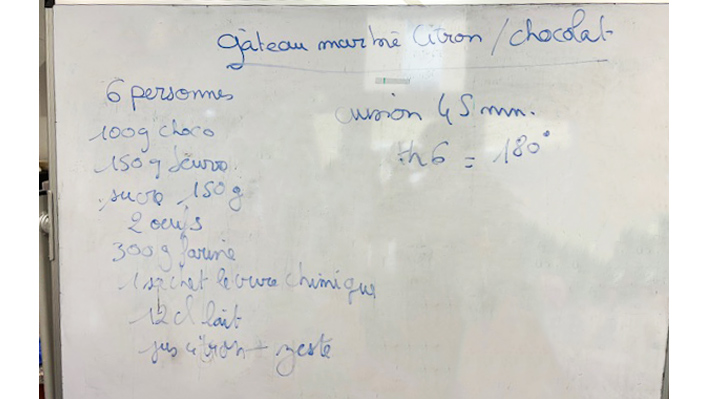 gâteau marbré Citron / chocolat
6 personnes
100g choco
150g beurre
sucre 150g
2 oeufs
300g farine
1 sachet levure chimique
12 cl lait
jus citron + zeste
cuisson 45 mn.
th6 = 180°